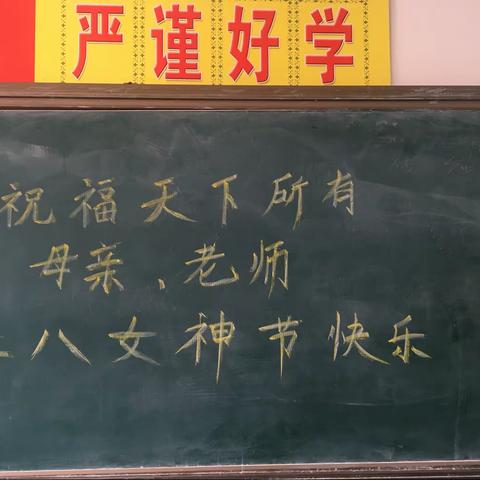 严谨好学
祝福天下所有
母亲、老师
三八女神节快乐